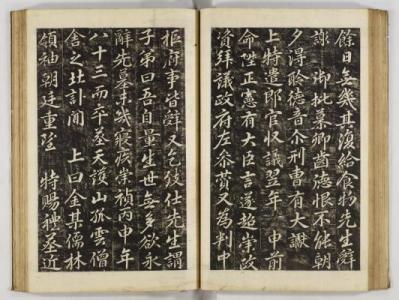 餘日無幾其須給食物先生辭
謝 御批慕卿齒德恨不能朝
夕得聆德音尒刑曹有大讞
上特遣郎官収議翌年 申前
命陞正憲有大臣言遂超崇政
資拜議政府左叅贊又為判中
樞府事皆辭又乞致仕先生謂
子弟曰吾自量生世無多欲永
辭先墓未幾寢疾崇禎丙申年
八十三而卒葬天護山孤雲僧
舍之北訃聞 上曰金某儒林
領袖朝廷重望 特賜礼葬近